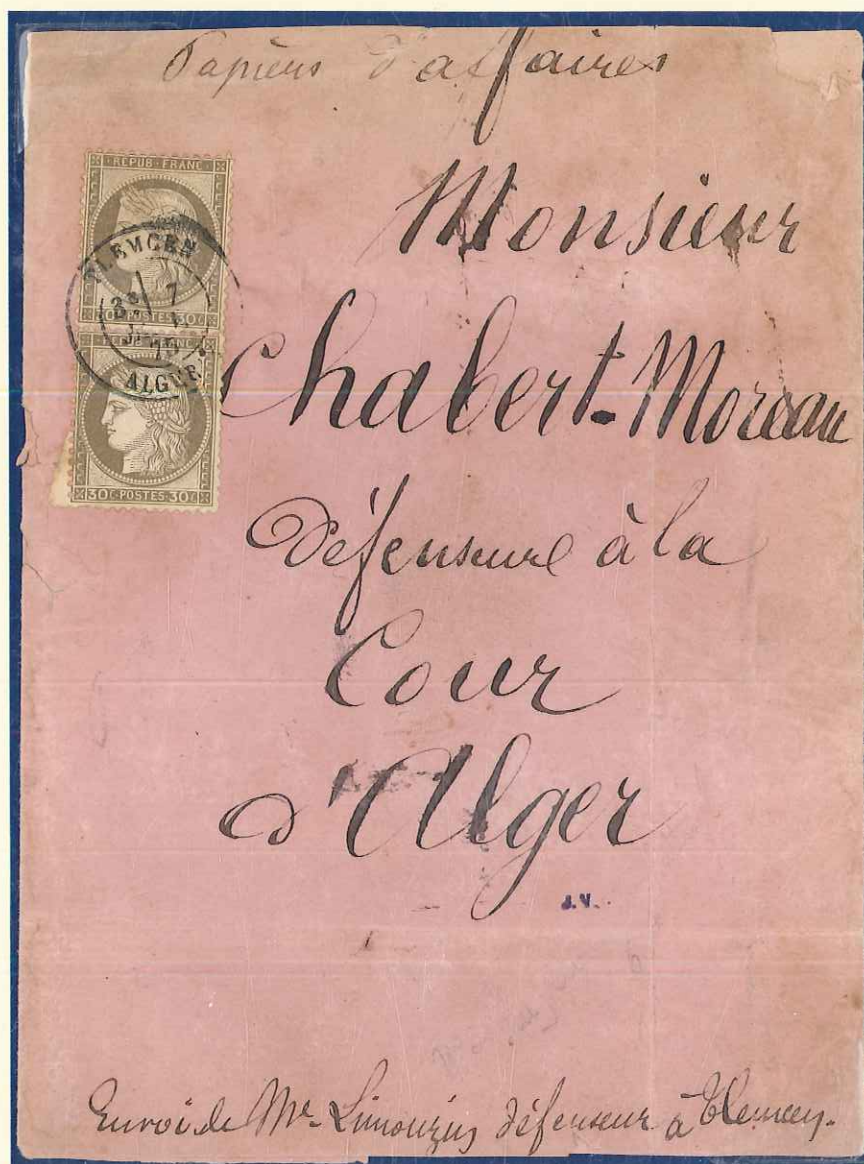 Papiers d'affaires
REPUB·FRANC·
30c 30c
TLEMCEN
3e 7
ALGER
30c·POSTES·30c
Monsieur
Chabert-Moreau
défenseure à la
Cour
d'Alger
J.V.
Envoi de Mr. Limouzin défenseur à Tlemcen.